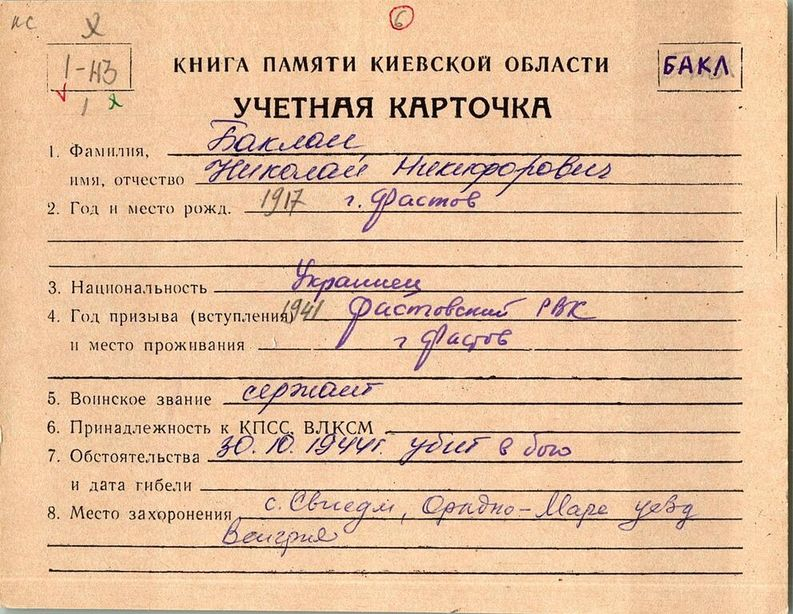 ис
6
1-43
1
КНИГА ПАМЯТИ КИЕВСКОЙ ОБЛАСТИ
БАКЛ
УЧЕТНАЯ КАРТОЧКА
1. Фамилия, Баклан
имя, отчество Николай Никифорович
2. Год и место рожд. 1917 г. Фастов
3. Национальность Украинец
4. Год призыва (вступления) 1941 Фастовский РВК
и место проживания г Фастов
5. Воинское звание сержант
6. Принадлежность к КПСС, ВЛКСМ
7. Обстоятельства 30.10.1944г. убит в бою
и дата гибели
8. Место захоронения с. уезд
Венгрия